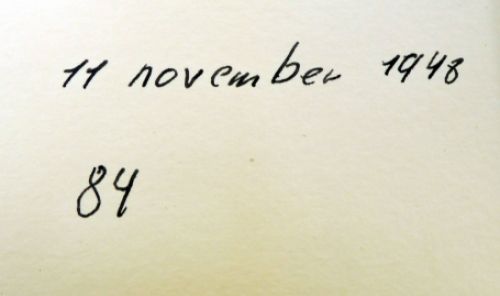 11 november 1948
84